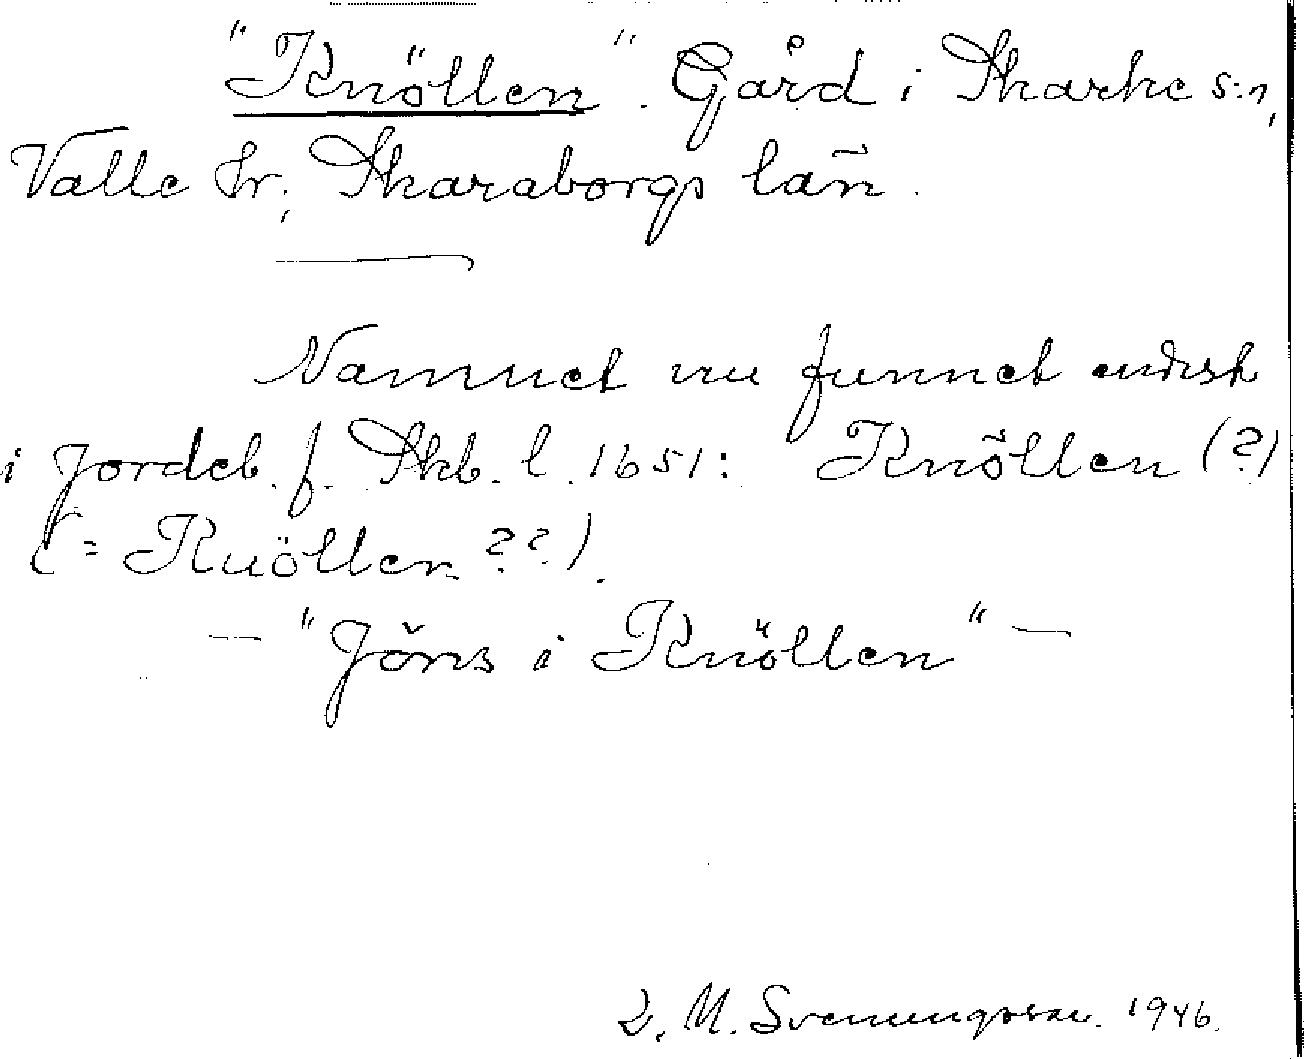 "Knöllen". Gård i Skarke s:n,
Valle hr, Skaraborgs län.
Namnet nu funnet endast
i Jordeb. f. Skb. l. 1651: Knöllen (?)
(= Knöllen ??).
— "Jöns i Knöllen" —
M. Svenungsson. 1946.